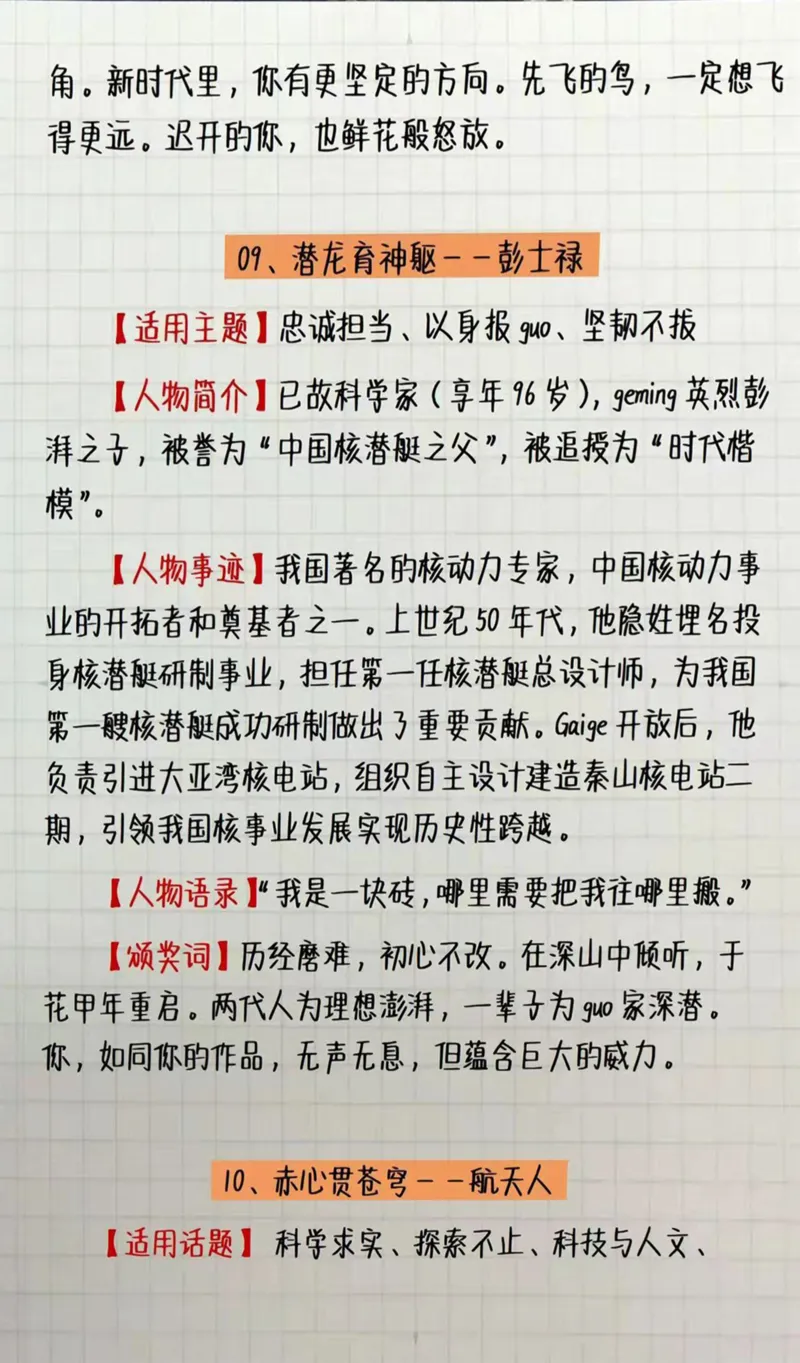 角。新时代里，你有更坚定的方向。先飞的鸟，一定想飞
得更远。迟开的你，也鲜花般怒放。
09、潜龙育神躯——彭士禄
【适用主题】忠诚担当、以身报guo、坚韧不拔
【人物简介】已故科学家（享年96岁），geming英烈彭
湃之子，被誉为“中国核潜艇之父”，被追授为“时代楷
模”。
【人物事迹】我国著名的核动力专家，中国核动力事
业的开拓者和奠基者之一。上世纪50年代，他隐姓埋名投
身核潜艇研制事业，担任第一任核潜艇总设计师，为我国
第一艘核潜艇成功研制做出了重要贡献。Gaige开放后，他
负责引进大亚湾核电站，组织自主设计建造秦山核电站二
期，引领我国核事业发展实现历史性跨越。
【人物语录】“我是一块砖，哪里需要把我往哪里搬。”
【颁奖词】历经磨难，初心不改。在深山中倾听，于
花甲年重启。两代人为理想澎湃，一辈子为guo家深潜。
你，如同你的作品，无声无息，但蕴含巨大的威力。
10、赤心贯苍穹——航天人
【适用话题】科学求实、探索不止、科技与人文、